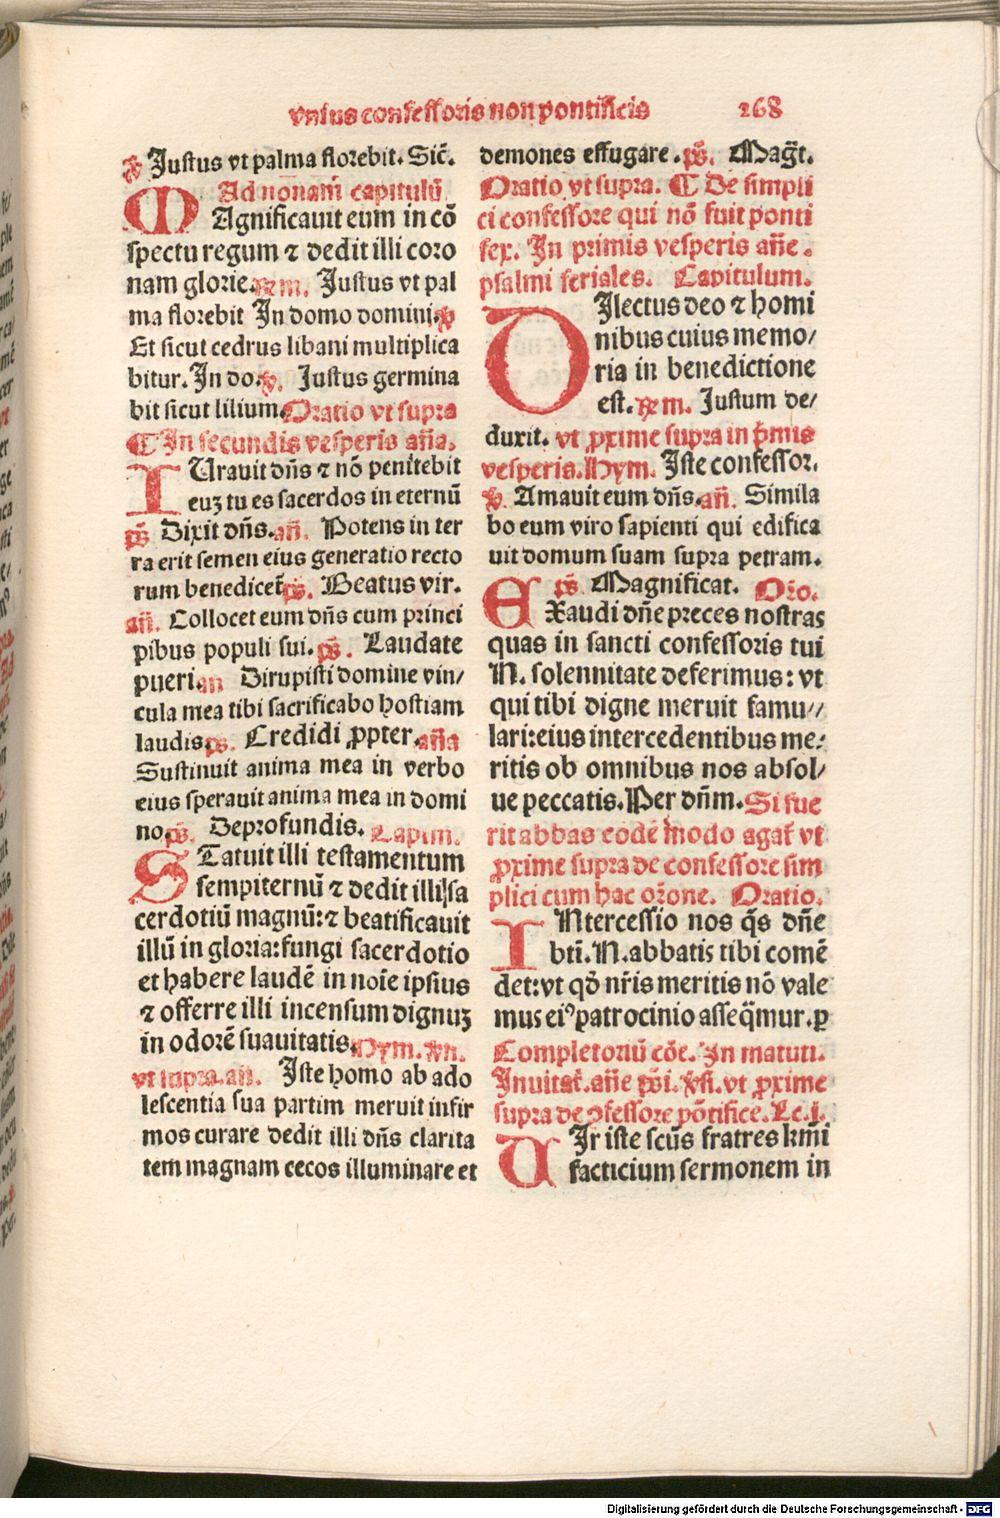 vnius confessoris non pontificis 268
℣ Justus vt palma florebit. Sic̄.
Ad nonam̄ capitulū.
MAgnificauit eum in cō
spectu regum ⁊ dedit illi coro
nam glorie. ℞m. Justus vt pal
ma florebit In domo domini. ℣
Et sicut cedrus libani multiplica
bitur. In do. ℣. Justus germina
bit sicut lilium. Oratio vt supra
¶ In secundis vesperis aña.
IUrauit dn̄s ⁊ nō penitebit
euꝫ tu es sacerdos in eternū
ps̄. Dixit dn̄s. añ. Potens in ter
ra erit semen eius generatio recto
rum benedicet̄ ps̄. Beatus vir.
añ. Collocet eum dn̄s cum princi
pibus populi sui. ps̄. Laudate
pueri. an Dirupisti domine vin/
cula mea tibi sacrificabo hostiam
laudis. ps. Credidi ꝓpter. aña
Sustinuit anima mea in verbo
eius sperauit anima mea in domi
no. ps̄. Deprofundis. Capim.
STatuit illi testamentum
sempiternū ⁊ dedit illi sa
cerdotiū magnū: ⁊ beatificauit
illū in gloria: fungi sacerdotio
et habere laudē in noīe ipsius
⁊ offerre illi incensum dignuꝫ
in odorē suauitatis. Hym. ℣n.
vt supra. an. Iste homo ab ado
lescentia sua partim meruit infir
mos curare dedit illi dn̄s clarita
tem magnam cecos illuminare et
demones effugare. ps̄. Mag̃t.
Oratio vt supra. ¶ De simpli
ci confessore qui nō fuit ponti
fex. In primis vesperis añe.
psalmi feriales. Capitulum.
DIlectus deo ⁊ homi
nibus cuius memo/
ria in benedictione
est. ℞m. Justum de/
duxit. vt ꝓxime supra in p̄mis
vesperis. Hym. Iste confessor.
℣. Amauit eum dn̄s. añ. Simila
bo eum viro sapienti qui edifica
uit domum suam supra petram.
ps̄. Magnificat. Orō.
EXaudi dn̄e preces nostras
quas in sancti confessoris tui
N. solennitate deferimus: vt
qui tibi digne meruit famu//
lari: eius intercedentibus me/
ritis ob omnibus nos absol/
ue peccatis. Per dn̄m. Si fue
rit abbas eodē modo agat̄ vt
ꝓxime supra de confessore sim
plici cum hac or̄one. Oratio.
INtercessio nos q̄s dn̄e
btī. N. abbatis tibi comē
det: vt qd̄ nr̄is meritis nō vale
mus ei⁹ patrocinio asseq̄mur. ꝑ
Completoriū cōe. In matuti.
Inuitat̄. añe p̄i. ℣si. vt ꝓxime
supra de ꝯfessore pōtifice. Lc. j.
UIr iste scūs fratres kr̄mi
facticium sermonem in
Digitalisierung gefördert durch die Deutsche Forschungsgemeinschaft - DFG